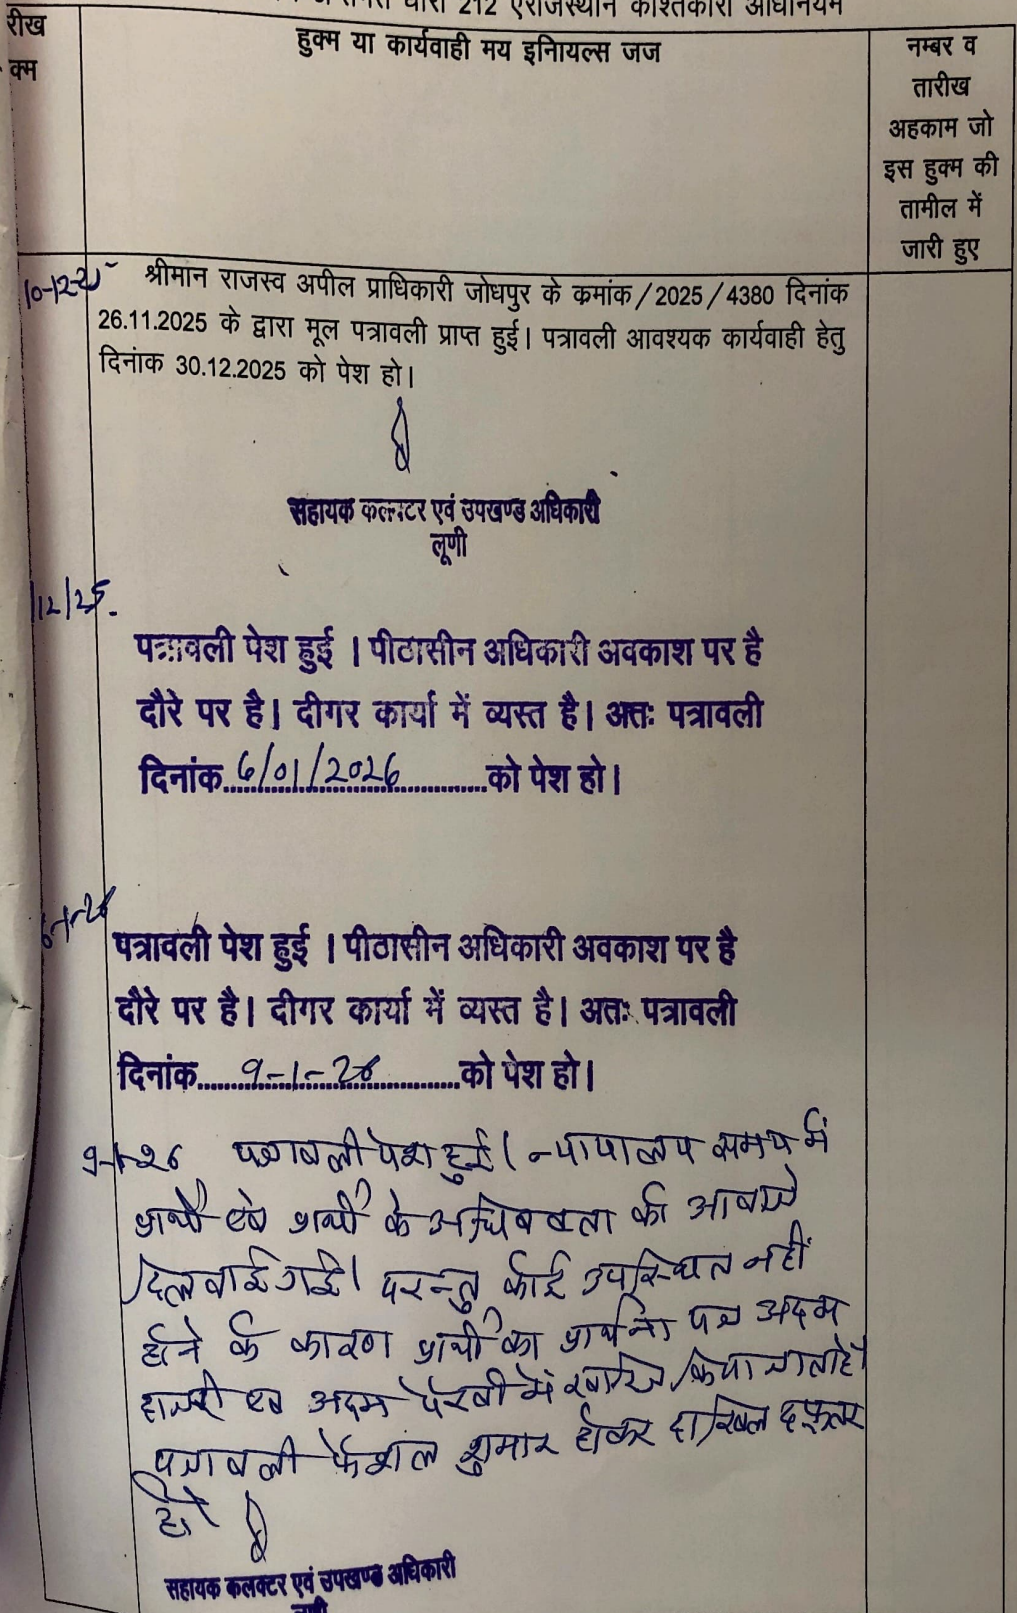 धारा 212 एराजस्थान काश्तकारी अधिनियम
रीख
क्म
हुक्म या कार्यवाही मय इनिायल्स जज
नम्बर व
तारीख
अहकाम जो
इस हुक्म की
तामील में
जारी हुए
10-12-25
श्रीमान राजस्व अपील प्राधिकारी जोधपुर के कमांक/2025/4380 दिनांक
26.11.2025 के द्वारा मूल पत्रावली प्राप्त हुई। पत्रावली आवश्यक कार्यवाही हेतु
दिनांक 30.12.2025 को पेश हो।
सहायक कलक्टर एवं उपखण्ड अधिकारी
लूणी
/12/25.
पत्रावली पेश हुई । पीठासीन अधिकारी अवकाश पर है
दौरे पर है। दीगर कार्या में व्यस्त है। अतः पत्रावली
दिनांक 6/01/2026 को पेश हो।
6-1-26
पत्रावली पेश हुई । पीठासीन अधिकारी अवकाश पर है
दौरे पर है। दीगर कार्या में व्यस्त है। अतः पत्रावली
दिनांक 9-1-26 को पेश हो।
9-1-26 पत्रावली पेश हुई। न्यायालय समय में
प्रार्थी एवं प्रार्थी के अधिवक्ता की आवाजे
दिलवाई गई। परन्तु कोई उपस्थित नहीं
होने के कारण प्रार्थी का प्रार्थना पत्र अदम
हाजरी एवं अदम पैरवी में खारिज किया जाता है।
पत्रावली फैशल शुमार होकर दाखिल दफ्तर
हो।
सहायक कलक्टर एवं उपखण्ड अधिकारी
लूणी